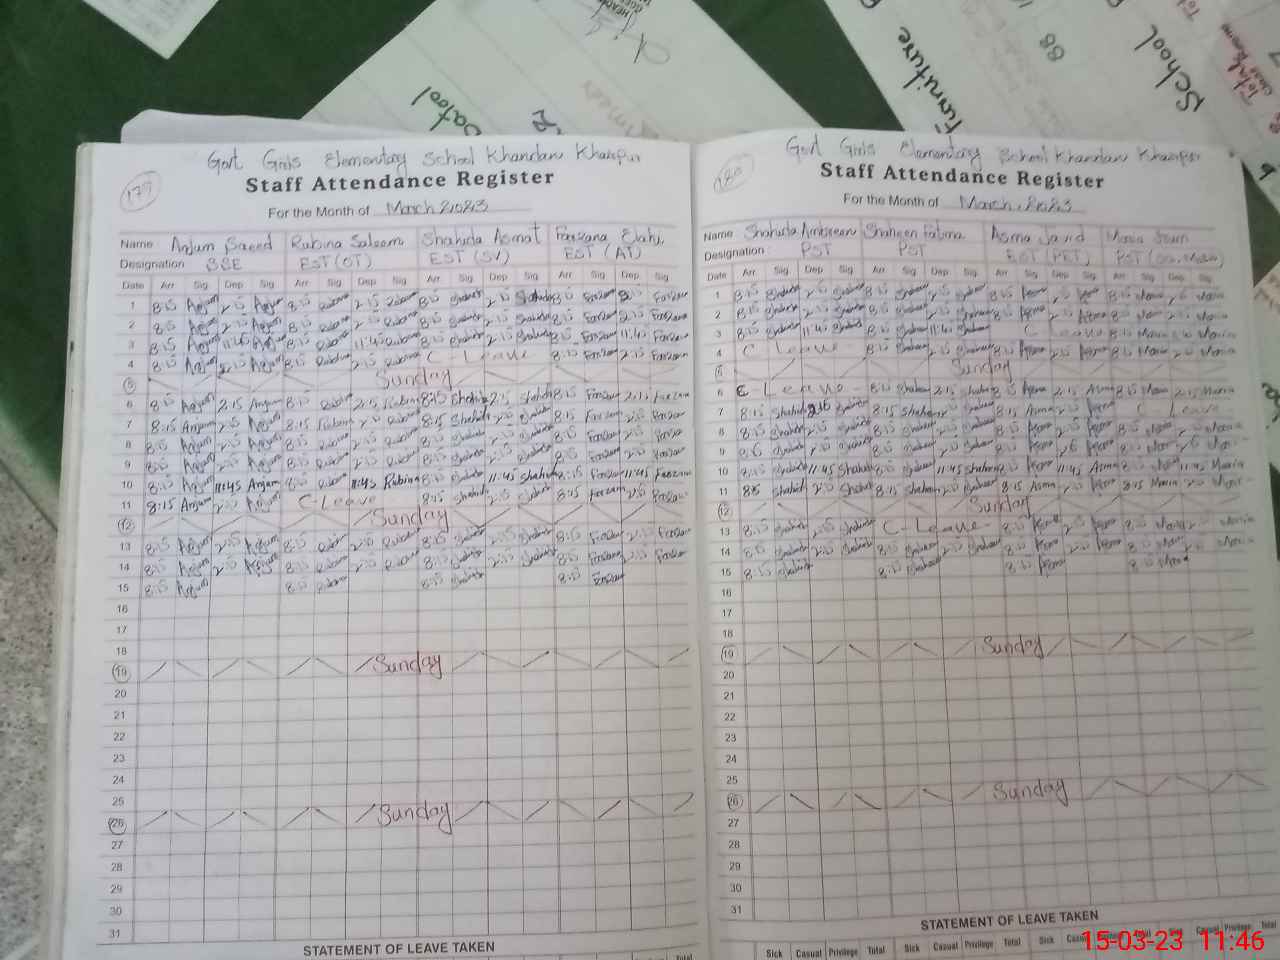 School
Furniture
88
School
Govt Girls Elementary School Khandan Khairpur
179
Staff Attendance Register
For the Month of March 2023
Name Anjum Saeed Rubina Saleem Shahida Asmat Farzana Elahi
Designation SSE EST (OT) EST (SV) EST (AT)
Date Arr Sig Dep Sig Arr Sig Dep Sig Arr Sig Dep Sig Arr Sig Dep Sig
1 8:15 Anjum 2:15 Anjum 8:15 Rubina 2:15 Rubina 8:15 Shahida 2:15 Shahida 8:15 Farzana 2:15 Farzana
2 8:15 Anjum 2:15 Anjum 8:15 Rubina 2:15 Rubina 8:15 Shahida 2:15 Shahida 8:15 Farzana 2:15 Farzana
3 8:15 Anjum 11:45 Anjum 8:15 Rubina 11:45 Rubina 8:15 Shahida 2:15 Shahida 8:15 Farzana 11:45 Farzana
4 8:15 Anjum 2:15 Anjum 8:15 Rubina 2:15 Rubina C-Leave 8:15 Farzana 2:15 Farzana
5 Sunday
6 8:15 Anjum 2:15 Anjum 8:15 Rubina 2:15 Rubina 8:15 Shahida 2:15 Shahida 8:15 Farzana 2:15 Farzana
7 8:15 Anjum 2:15 Anjum 8:15 Rubina 2:15 Rubina 8:15 Shahida 2:15 Shahida 8:15 Farzana 2:15 Farzana
8 8:15 Anjum 2:15 Anjum 8:15 Rubina 2:15 Rubina 8:15 Shahida 2:15 Shahida 8:15 Farzana 2:15 Farzana
9 8:15 Anjum 2:15 Anjum 8:15 Rubina 2:15 Rubina 8:15 Shahida 2:15 Shahida 8:15 Farzana 2:15 Farzana
10 8:15 Anjum 11:45 Anjum 8:15 Rubina 11:45 Rubina 8:15 Shahida 11:45 Shahida 8:15 Farzana 11:45 Farzana
11 8:15 Anjum 2:15 Anjum C-Leave 8:15 Shahida 2:15 Shahida 8:15 Farzana 2:15 Farzana
12 Sunday
13 8:15 Anjum 2:15 Anjum 8:15 Rubina 2:15 Rubina 8:15 Shahida 2:15 Shahida 8:15 Farzana 2:15 Farzana
14 8:15 Anjum 2:15 Anjum 8:15 Rubina 2:15 Rubina 8:15 Shahida 2:15 Shahida 8:15 Farzana 2:15 Farzana
15 8:15 Anjum 8:15 Rubina 8:15 Shahida 8:15 Farzana
16
17
18
19 Sunday
20
21
22
23
24
25
26 Sunday
27
28
29
30
31
STATEMENT OF LEAVE TAKEN
Total
Govt Girls Elementary School Khandan Khairpur
180
Staff Attendance Register
For the Month of March 2023
Name Shahida Ambreen Shaheen Fatima Asma Javid Maria
Designation PST PST EST (PET) PST
Date Arr Sig Dep Sig Arr Sig Dep Sig Arr Sig Dep Sig Arr Sig Dep Sig
1 8:15 Shahida 2:15 Shahida 8:15 Shaheen 2:15 Shaheen 8:15 Asma 2:15 Asma 8:15 Maria 2:15 Maria
2 8:15 Shahida 2:15 Shahida 8:15 Shaheen 2:15 Shaheen 8:15 Asma 2:15 Asma 8:15 Maria 2:15 Maria
3 8:15 Shahida 11:45 Shahida 8:15 Shaheen 11:45 Shaheen C Leave 8:15 Maria Maria
4 C Leave 8:15 Shaheen 2:15 Shaheen 8:15 Asma 2:15 Asma 8:15 Maria 2:15 Maria
5 Sunday
6 C-Leave 8:15 Shaheen 2:15 Shaheen 8:15 Asma 2:15 Asma 8:15 Maria 2:15 Maria
7 8:15 Shahida 2:15 Shahida 8:15 Shaheen 2:15 Shaheen 8:15 Asma 2:15 Asma C Leave
8 8:15 Shahida 2:15 Shahida 8:15 Shaheen 2:15 Shaheen 8:15 Asma 2:15 Asma 8:15 Maria 2:15 Maria
9 8:15 Shahida 2:15 Shahida 8:15 Shaheen 2:15 Shaheen 8:15 Asma 2:15 Asma 8:15 Maria 2:15 Maria
10 8:15 Shahida 11:45 Shahida 8:15 Shaheen 11:45 Shaheen 8:15 Asma 11:45 Asma 8:15 Maria 11:45 Maria
11 8:15 Shahida 2:15 Shahida 8:15 Shaheen 2:15 Shaheen 8:15 Asma 2:15 Asma 8:15 Maria 2:15 Maria
12 Sunday
13 8:15 Shahida 2:15 Shahida C-Leave 8:15 Asma 2:15 Asma 8:15 Maria Maria
14 8:15 Shahida 2:15 Shahida 8:15 Shaheen 2:15 Shaheen 8:15 Asma 2:15 Asma 8:15 Maria Maria
15 8:15 Shahida 8:15 Shaheen 8:15 Asma 8:15 Maria
16
17
18
19 Sunday
20
21
22
23
24
25
26 Sunday
27
28
29
30
31
STATEMENT OF LEAVE TAKEN
Sick Casual Privilege Total Sick Casual Privilege Total Sick Casual Total Sick Casual Privilege Total
15-03-23 11:46